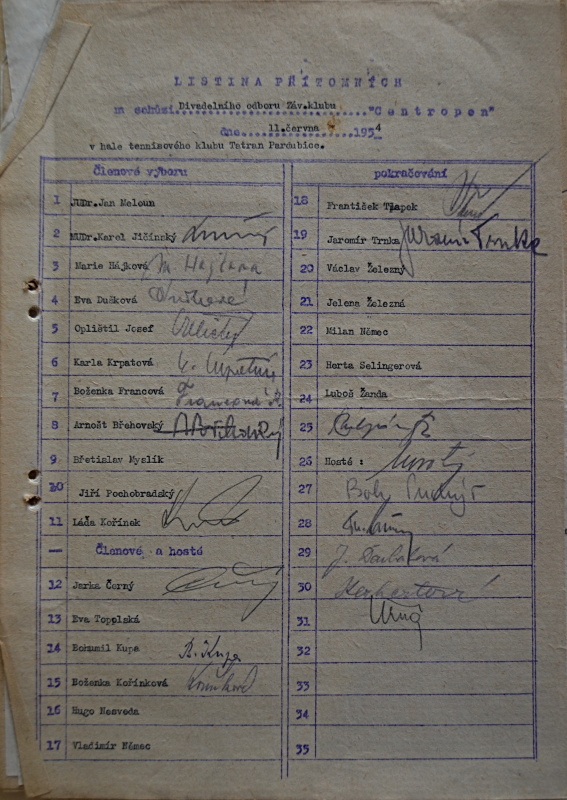 LISTINA PŘÍTOMNÝCH
na schůzi Divadelního odboru Záv.klubu "Centropen"
dne 11.června 1954
v hale tennisového klubu Tatran Pardubice.
Členové výboru
1 JUDr.Jan Meloun
2 MUDr.Karel Jičínský
3 Marie Hájková M Hajkova
4 Eva Dušková Dušková
5 Opližtil Josef
6 Karla Krpatová K. Krpatová
7 Boženka Francová Francová B
8 Arnošt Břehovský A Břehovský
9 Břetislav Myslík
10 Jiří Pochobradský
11 Láďa Kořínek
— Členové a hosté
12 Jarka Černý Černý
13 Eva Topolská
14 Bohumil Kupa B. Kupa
15 Boženka Kořínková Kořínková
16 Hugo Nesveda
17 Vladimír Němec
pokračování
18 František Ťlapek
19 Jaromír Trnka Jaromír Trnka
20 Václav Železný
21 Jelena Železná
22 Milan Němec
23 Herta Selingerová
24 Luboš Žanda
25
26 Hosté :
27
28
29
30
31
32
33
34
35